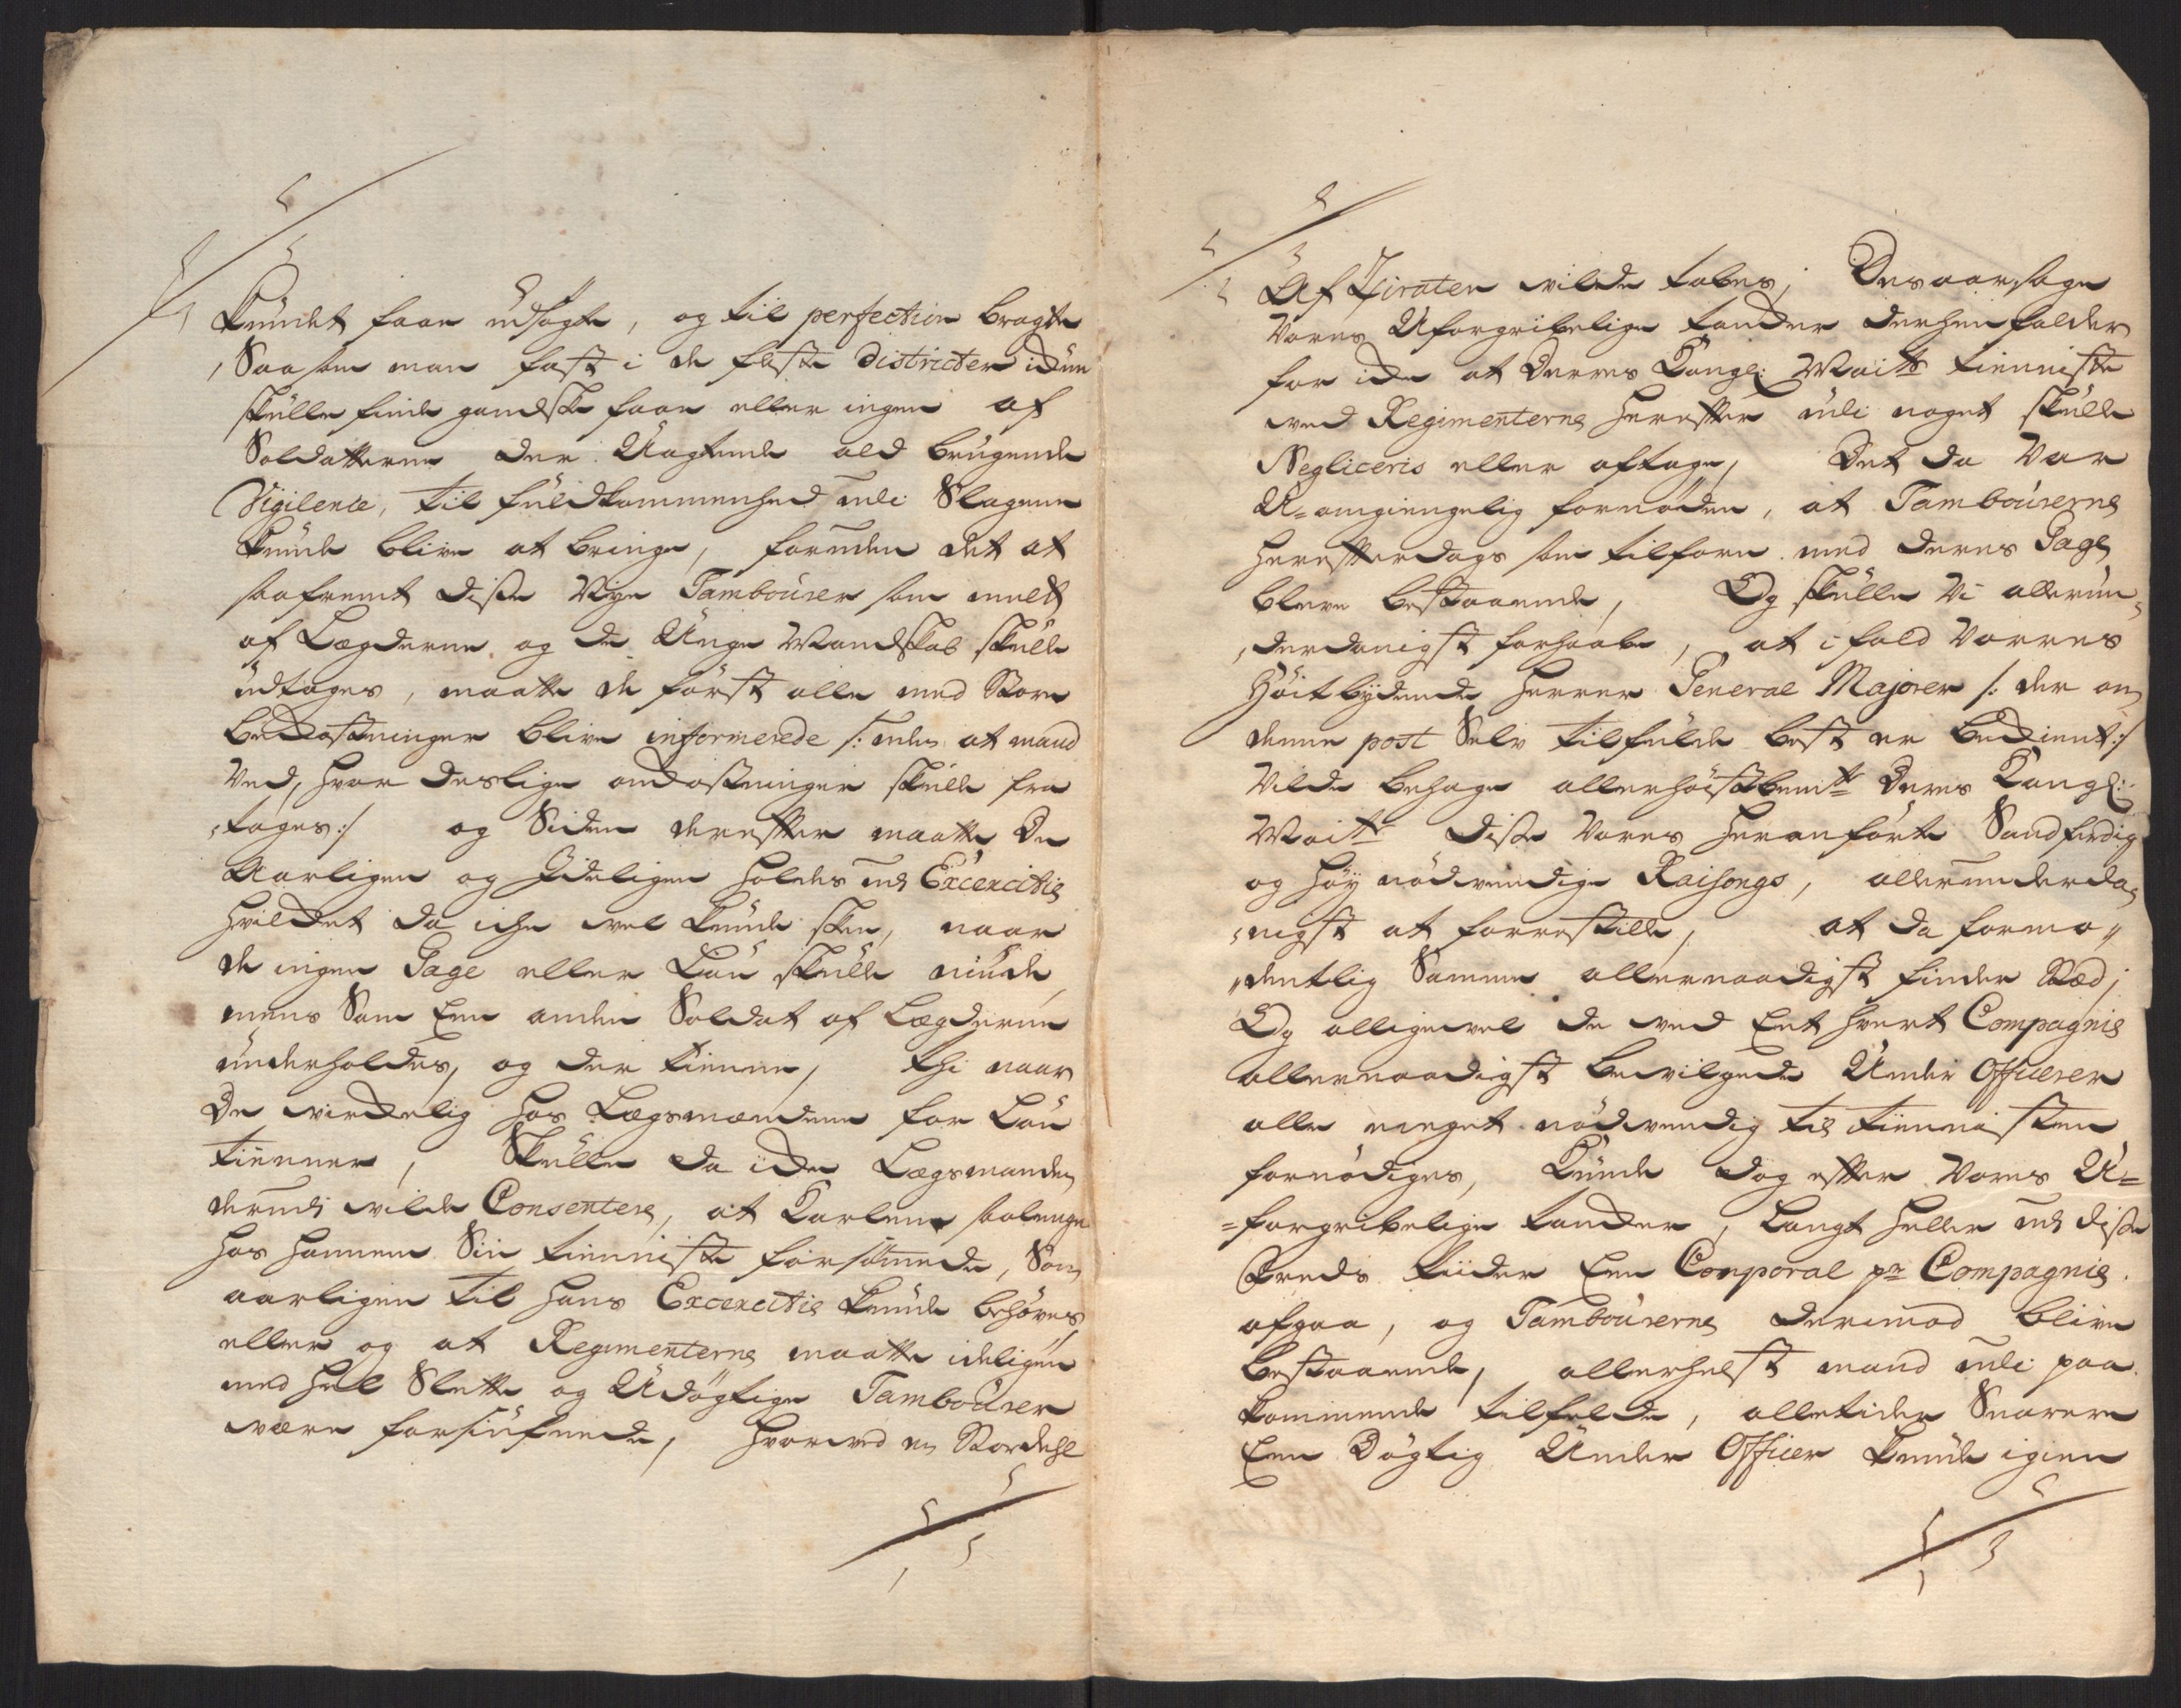 kundet faae udsøgte, og til perfection bragte
, Saa som man fast i de fleste districter iche
skulle finde gandske faae eller ingen af
Soldatterne der Uagtende ald brugende
Vigilence, til fuldkommenhed udi Slagene
kunde blive at bringe, foruden det at
saafremt disse Nye Tambourer som meldt
af Lægderne og de Unge Mandskab skulle
udtages, maatte de først alle med Store
bekostninger blive informerede /: uden at mand
Ved, hvor deslige omkostninger skulle fra
,tages :/ og Siden derefter maatte De
Aarligen og Ideligen holdes udi Excercitie
hvilcket da iche vel kunde skee, naar
de ingen Gage eller Løn skulle niude,
mens Som Een anden Soldat af Lægderne
underholdes, og der tienne, thi naar
De virckelig hos Lægsmændene for Løn
tienner, Skulle da iche Lægsmanden
derudi vilde Consentere, at Karlene saalenge
hos hannem Sin tienniste forsømmede, Som
aarligen til hans Excercitie kunde behøves
eller og at Regimenterne maatte ideligen
med heel Slette og Udøgtige Tambourer
være forsiufnede, hvorved en Stordehl
Af Ziraten vilde tabes, Desaarsage
Vores Uforgribelige tancker derhen falder
for iche at Deres Kongl: Maitts tienniste
ved Regimenterne herefter udi noget skulle
Negliceris eller aftage, Det da Var
U=omgiengelig fornøden, at Tambourerne
herefterdags som tilforn med deres Gage
bleve bestaaende, Og skulle Vi allerun=
,derdanigst forhaabe, at ifald Vorres
Høitbydende Herrer General Majorer /: der om
denne post Selv tilfulde best er bekient :/
Vilde behage allerhøistbemte Deres Kongl:
Maitt disse Vores heranførte Sandferdig
og høy nødvendige Raisongs, allerunderda=
,nigst at forrestille, at da formo,,
,,dentlig Samme allernaadigst finder Stæd;
Og alligevel de ved Eet hvert Compagnie
allernaadigst bevilgede Under Officerer
alle meget nødvendig til tiennisten
fornødiges, Kunde dog efter Vores U=
=forgribelige tancker, langt heller udi disse
Freds tiider Een Corporal pr Compagnie
afgaa, og Tambourerne derimod blive
bestaaende, allerhelst mand udi paa
kommende tilfelde, alletider Snarere
Een Døgtig Under Officer kunde igien